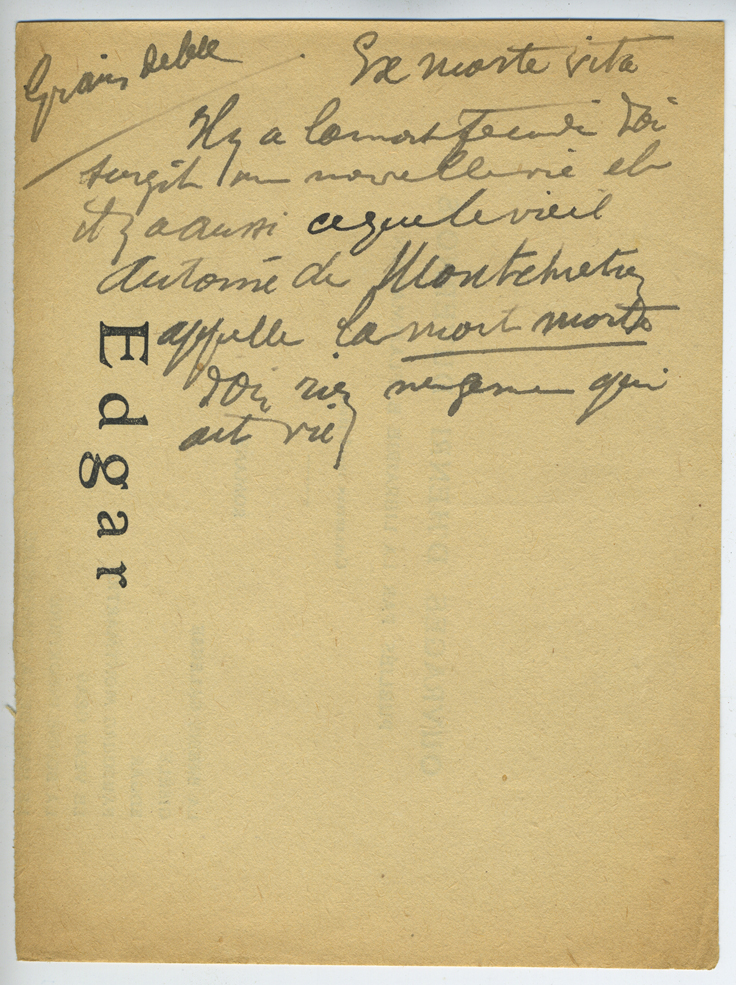 Grains de blé
Ex morte vita
Il y a la mort feconde d'où
surgit une nouvelle vie et
il y a aussi ce que le vieil
Antoine de Montchretien
appelle la mort morte
d'où rien ne germe qui
ait vie
Edgar